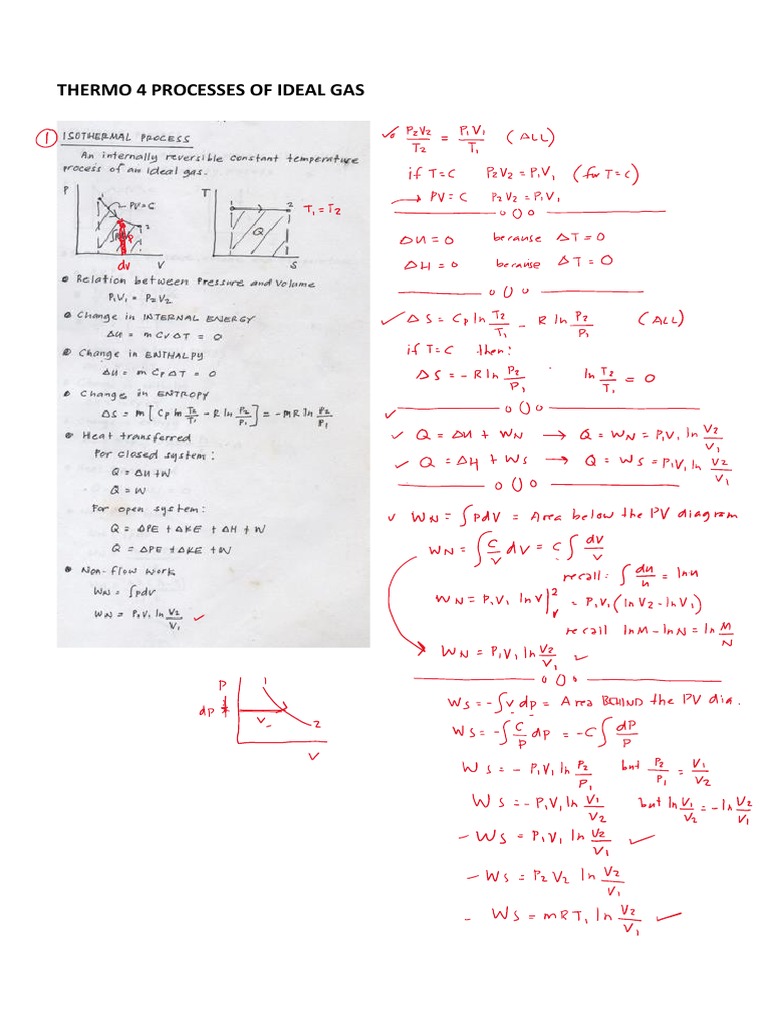 THERMO 4 PROCESSES OF IDEAL GAS
① ISOTHERMAL PROCESS
An internally reversible constant temperature
process of an ideal gas.
P
1
PV=C
2
∫PdV
dv
V
T
1
2
Q
S
T₁ = T₂
• Relation between Pressure and Volume
P₁V₁ = P₂V₂
• Change in INTERNAL ENERGY
ΔU = m Cv ΔT = 0
• Change in ENTHALPY
ΔU = m Cp ΔT = 0
• Change in ENTROPY
ΔS = m [Cp ln T₂/T₁ - R ln P₂/P₁] = -mR ln P₂/P₁
• Heat transferred
For closed system:
Q = ΔU + W
Q = W
For open system:
Q = ΔPE + ΔKE + ΔH + W
Q = ΔPE + ΔKE + W
• Non-flow work
WN = ∫pdV
WN = P₁V₁ ln V₂/V₁ ✓
P
1
dp
V
2
V
P₂V₂/T₂ = P₁V₁/T₁ (ALL)
if T=C P₂V₂ = P₁V₁ (for T=C)
→ PV = C P₂V₂ = P₁V₁
ΔU = 0 because ΔT = 0
ΔH = 0 because ΔT = 0
✓ ΔS = Cp ln T₂/T₁ - R ln P₂/P₁ (ALL)
if T=C then:
ΔS = -R ln P₂/P₁ ln T₂/T₁ = 0
✓
✓ Q = ΔU + WN → Q = WN = P₁V₁ ln V₂/V₁
✓ Q = ΔH + WS → Q = WS = P₁V₁ ln V₂/V₁
✓ WN = ∫pdV = Area below the PV diagram
WN = ∫ C/V dV = C ∫ dV/V
recall: ∫ du/u = ln u
WN = P₁V₁ ln V |²₁ = P₁V₁ (ln V₂ - ln V₁)
recall ln M - ln N = ln M/N
WN = P₁V₁ ln V₂/V₁ ✓
WS = -∫v dp = Area BEHIND the PV dia.
WS = -∫ C/P dp = -C ∫ dP/P
WS = -P₁V₁ ln P₂/P₁ but P₂/P₁ = V₁/V₂
WS = -P₁V₁ ln V₁/V₂ but ln V₁/V₂ = -ln V₂/V₁
- WS = P₁V₁ ln V₂/V₁ ✓
- WS = P₂V₂ ln V₂/V₁
- WS = mRT₁ ln V₂/V₁ ✓